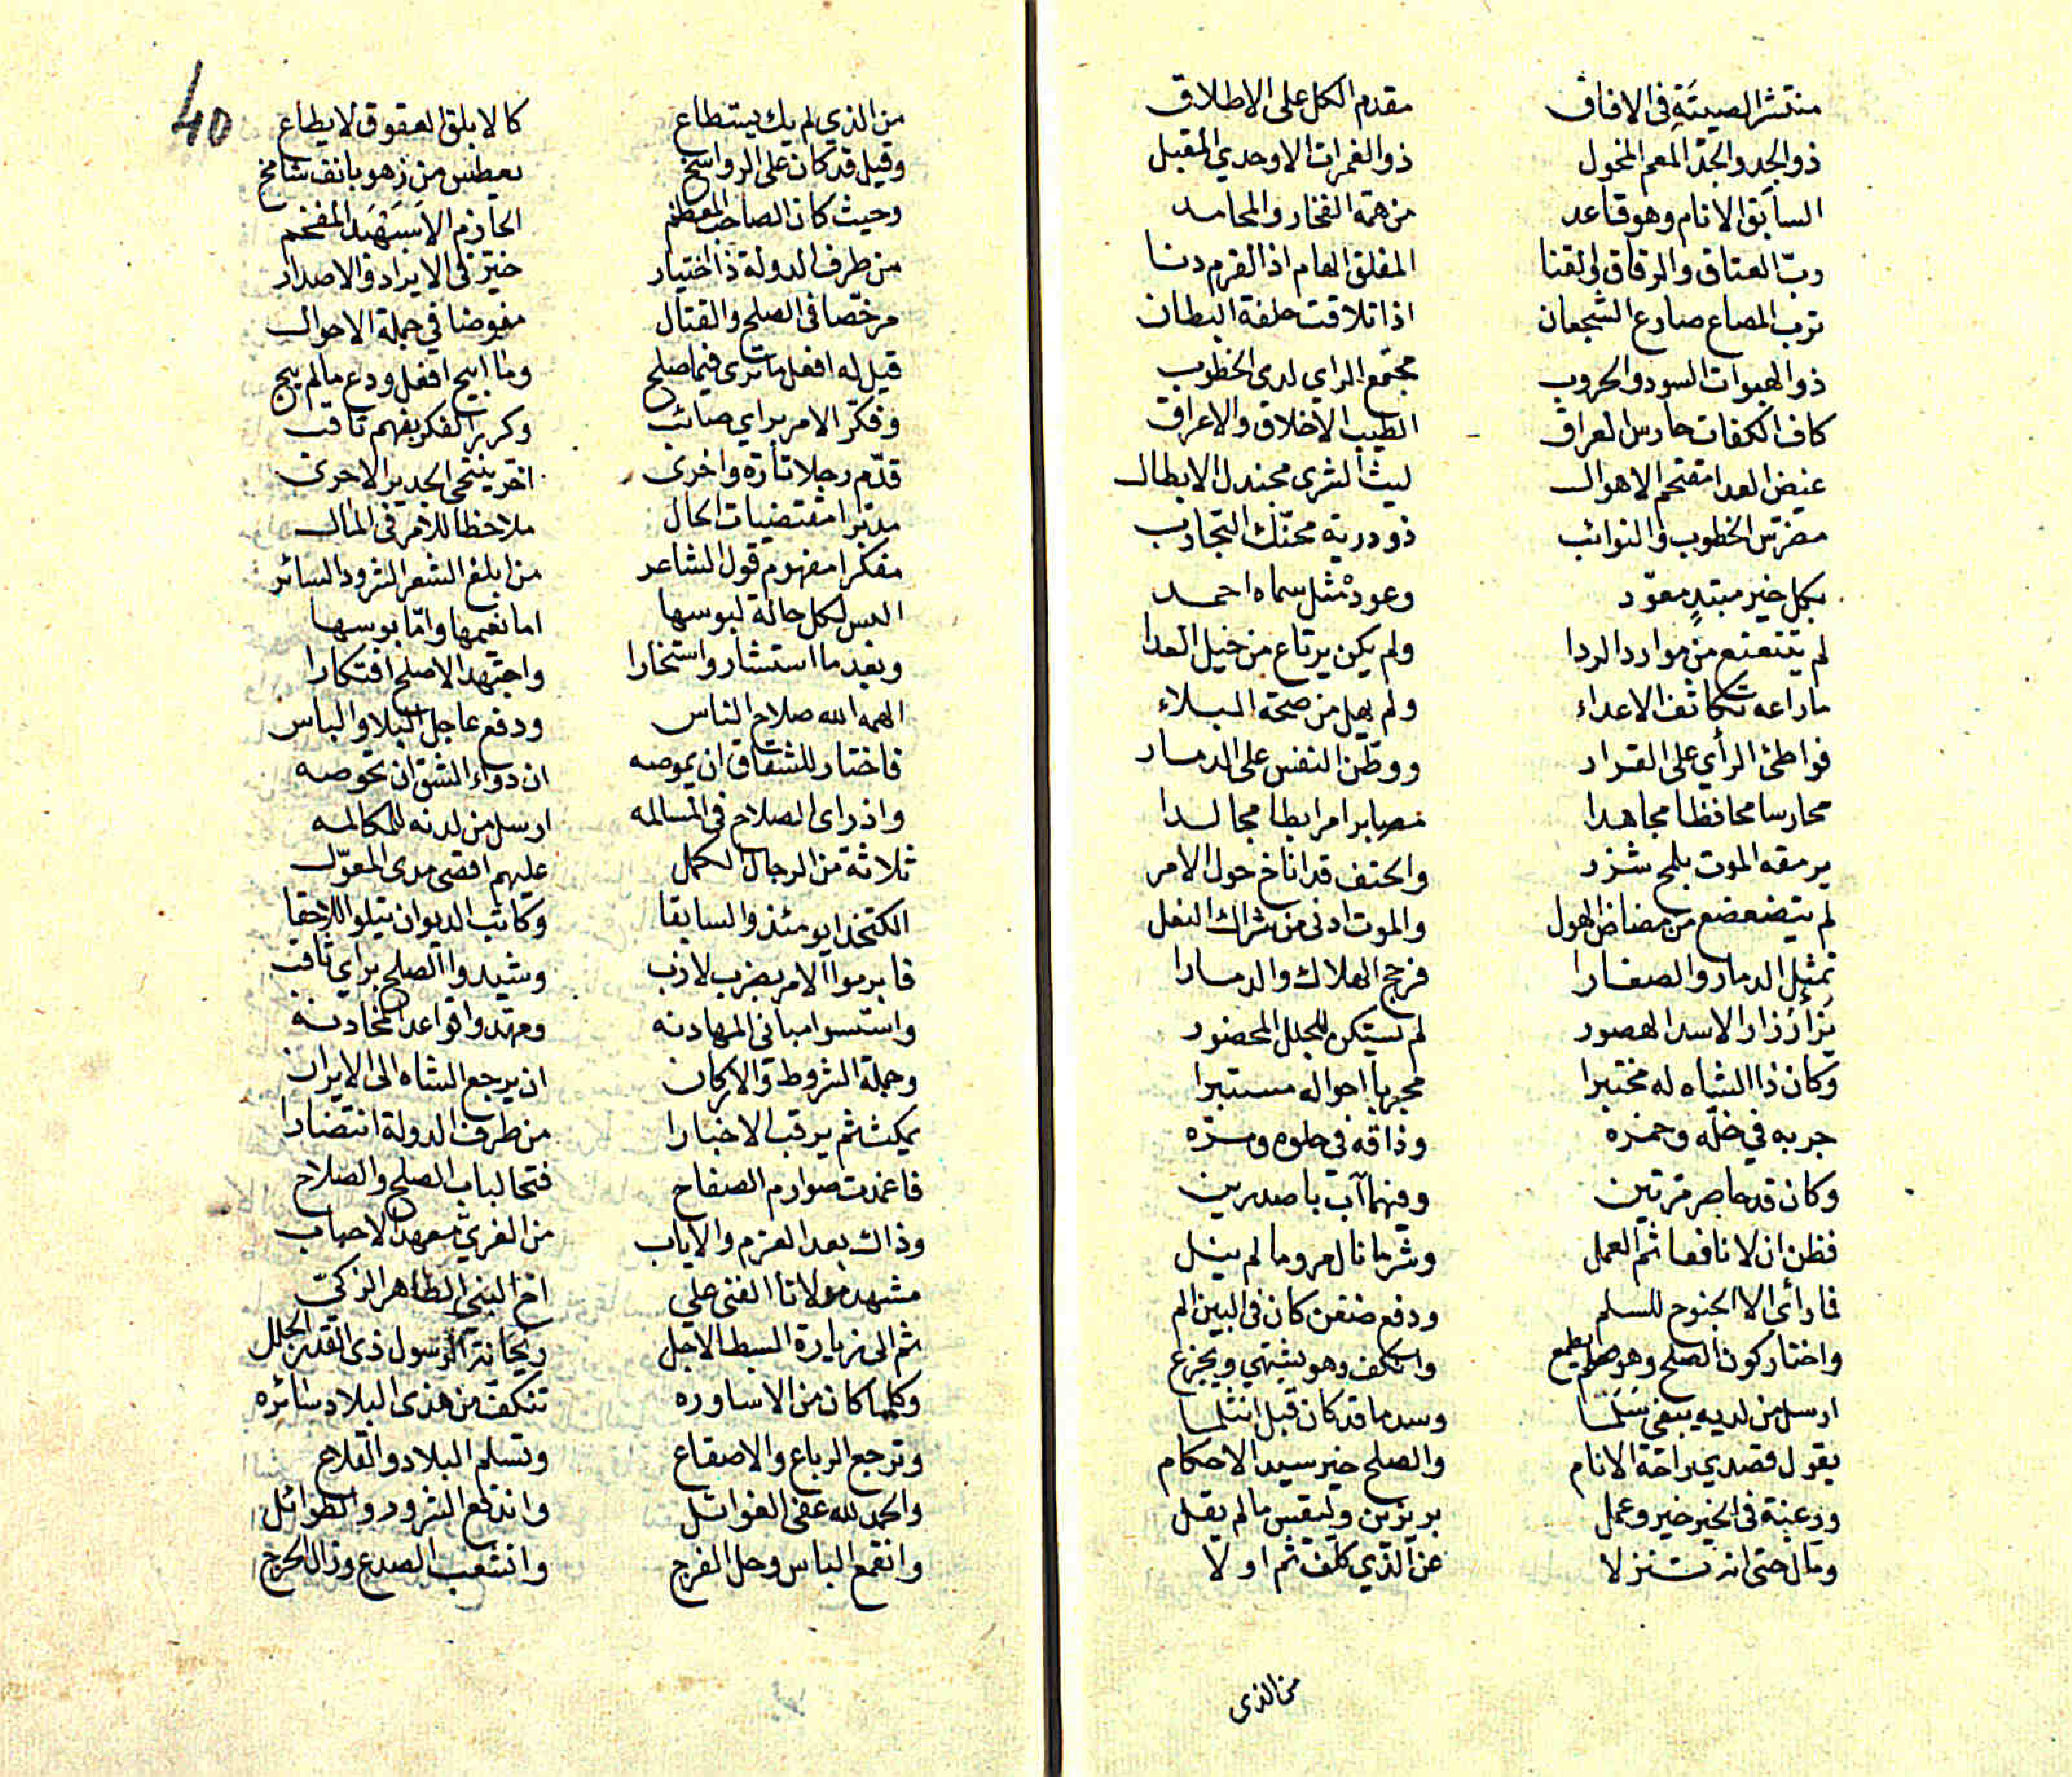 منتشر الصيتة في الافاق مقدم الكل على الاطلاق
ذو الجد والجد المعم المخول ذو الغمرات الاوحدي المقبل
السابق الانام وهو قاعد من همه الفخار والمحامد
ربّ العتاق والرقاق والقنا المفلق الهام اذا القرم دنا
ترب المصاع صارع الشجعان اذا تلاقت حلقة البطان
ذو الهبوات السود والحروب مجتمع الراي لدى الخطوب
كاف الكفات حارس العراق الطيب الاخلاق والاعراق
غيض العدا مقتحم الاهوال ليث الشرى مجندل الابطال
مضرّس الخطوب والنوائب ذو دربة محنّك التجارب
بكل خير مبتدٍ معوّد وعود مثل سماه احمد
لم يتتعتع من موارد الردا ولم يكن يرتاع من خيل العدا
ما راعه تكاثف الاعداء ولم يهل من صحة البلاء
فواطئ الرأي على القرار ووطّن النفس على الدمار
محارسا محافظا مجاهدا مصابرا مرابطا مجالدا
يرمقه الموت بلمح شزر والحتف قد اناخ حول الامر
لم يتضعضع من مضاض الهول والموت ادنى من شراك النعل
تمثيل الدمار والصغارا فرجح الهلاك والدمارا
يزأر زار الاسد الهصور لم يستكن للجلل المحضور
وكان ذا الشاه له مختبرا مجربا احواله مستبرا
جربه في خلّه وخمره وذاقه في حلوه ومرّه
وكان قد حاصر مرتين وفيهما آب باصدرين
فظن ان لا نافعا ثم العمل وشر ما نال امرو ما لم ينل
فما رأى الا الجنوح للسلم ودفع ضغن كان في البين الم
واختار كون الصلح وهو يطمع وانكف وهو يشتهي ويجزع
ارسل من لديه يبغى سَلَما وسد ما قد كان قبل انثلما
يقول قصدي راحة الانام والصلح خير سيد الاحكام
ورغبة في الخير خير وعمل بر يزين وليقس ما لم يقل
ومال حتى انه تنزلا عن الذي كلّف ثم اولا
من الذي
40
من الذي لم يك يستطاع كالابلق العقوق لا يطاع
وقيل قد كان على الرواسخ يعطس من زهو بانف شامخ
وحيث كان الصاحب المعظم الحازم الاسپهبد المفخم
من طرف الدولة ذا اختيار خيّر في الايراد والاصدار
مرخّصا في الصلح والقتال مفوضا في جملة الاحوال
قيل له افعل ما ترى فيما صلح وما ابيح افعل ودع ما لم يبح
وفكّر الامر براي صائب وكرر الفكر بفهم ثاقب
قدّم رجلا تارة واخرى اخّر ينتحي الجدير الاحرى
مدبّرا مقتضيات الحال ملاحظا للامر في المال
مفكرا مفهوم قول الشاعر من ابلغ الشعر الشرود السائر
البس لكل حالة لبوسها اما نعيمها واما بوسها
وبعد ما استشار واستخارا واجتهد الاصلح افتكارا
الهمه الله صلاح الناس ودفع عاجل البلا والباس
فاختار للشقاق ان يموصه ان دواء الشق ان تحوصه
واذ راى الصلاح في المسالمه ارسل من لدنه للمكالمه
ثلاثة من الرجال الكمل عليهم اقصى مدى المعوّل
الكتخدا يومئذ والسابقا وكاتب الديوان يتلو اللاحقا
فابرموا الامر بضرب لازب وشيدوا الصلح براي ثاقب
واسسوا مباني المهادنه ومهدوا قواعد المخادنه
وجملة الشروط والاركان ان يرجع الشاه الى الايران
يمكث ثم يرقب الاخبارا من طرف الدولة انتضارا
فاغمدت صوارم الصفاح فتحا لباب الصلح والصلاح
وذاك بعد العزم والاياب من الغري معهد الاحباب
مشهد مولانا الفتى علي اخ النبي الطاهر الزكي
ثم الى زيارة السبط الاجل ريحانة الرسول ذي القدر الجلل
وكلما كان من الاساوره تنكف من هذي البلاد سائره
وترجع الرباع والاصقاع وتسلم البلاد والقلاع
والحمد لله عفى الغوائل واندفع الشرور والطوائل
وانقمع الباس وحل الفرج وانشعب الصدع وزال الحرج